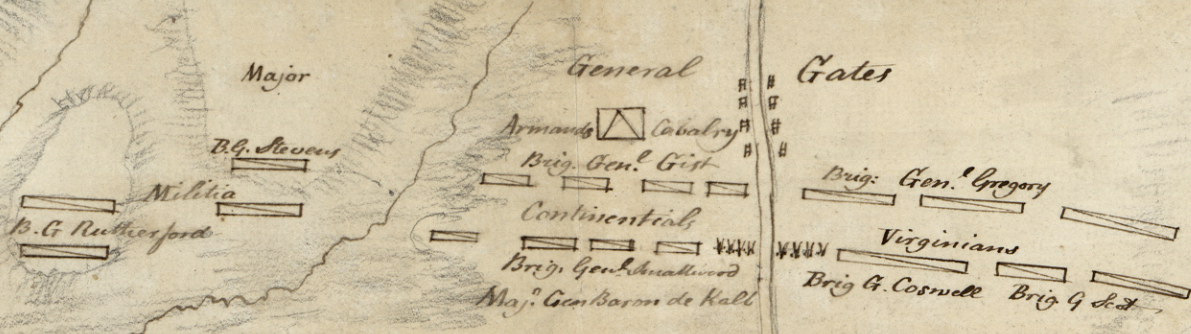 Major General Gates
Armands Cavalry
B.G. Stevens
Brig. Genl. Gist
Brig: Genl. Gregory
Militia
Continentials
B. G Rutherford
Virginians
Brig. Genl. Smallwood
Brig G. Coswell
Brig. G Scot
Majr. Gen Baron de Kalb